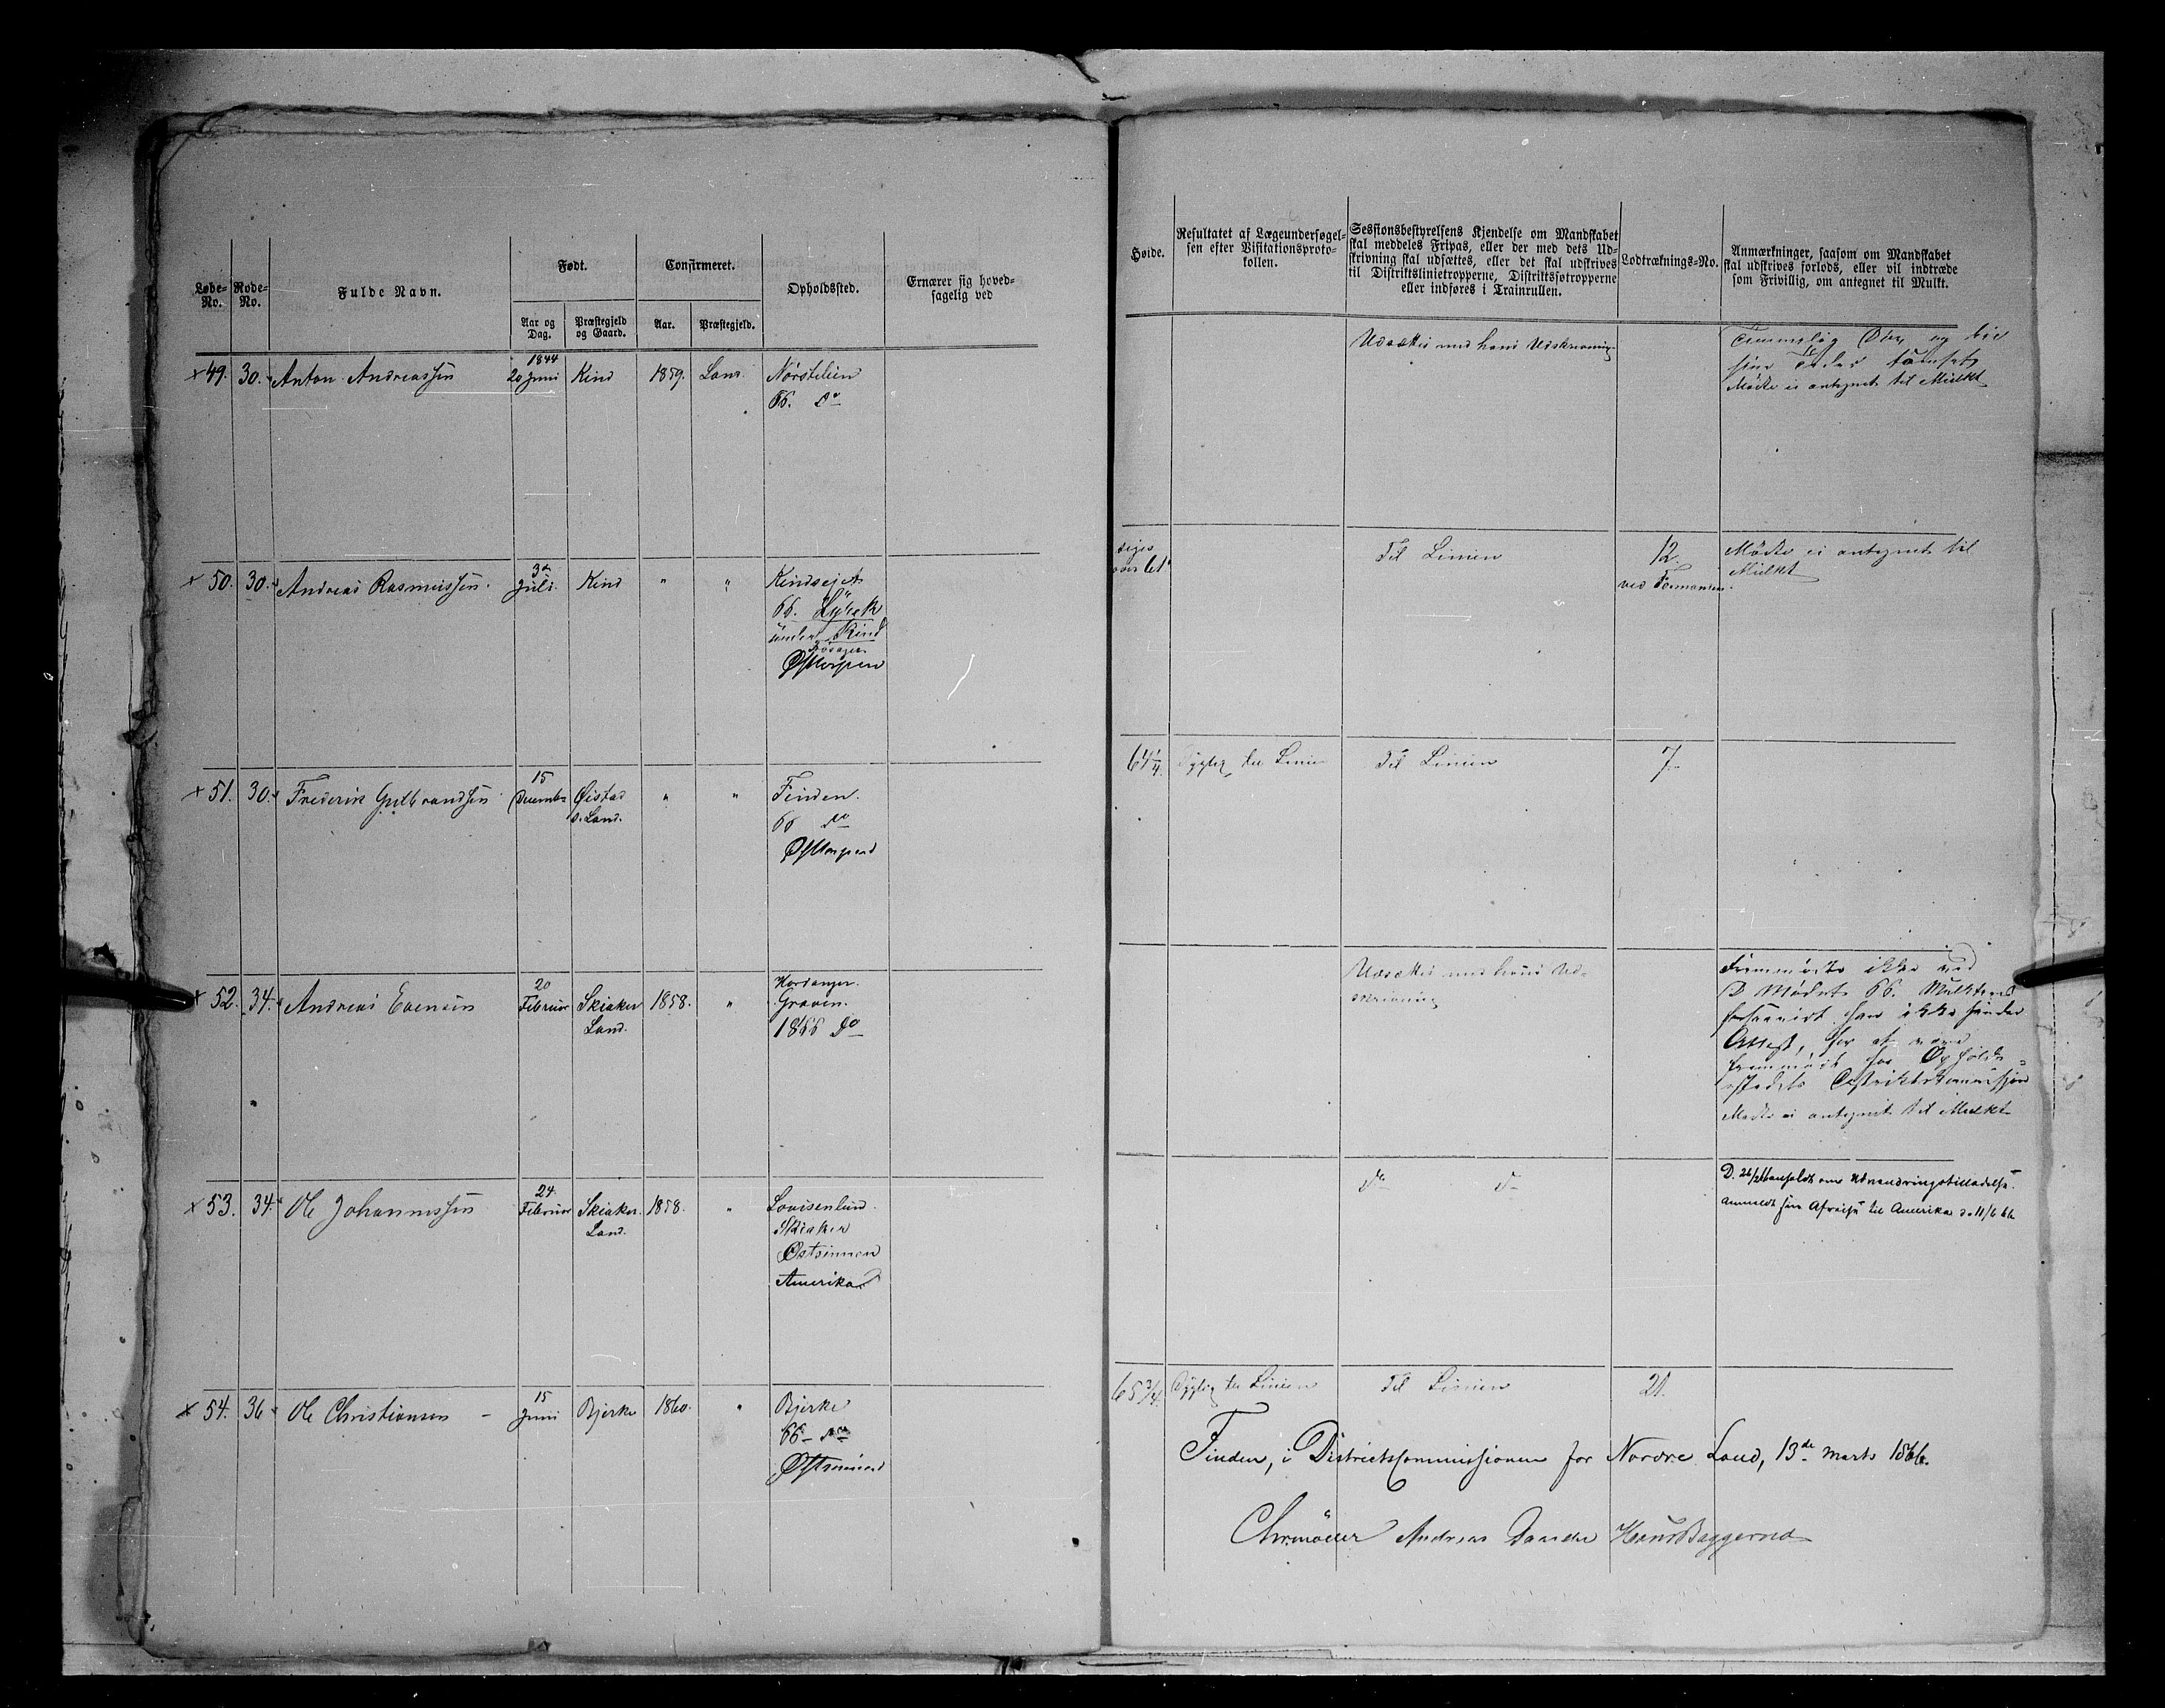 Løbe-No.
Rode-No.
Fulde Navn.
Født.
Aar og Dag.
Præstegjeld og Gaard.
Confirmeret.
Aar.
Præstegjeld.
Opholdssted.
Ernærer sig hoved-
sagelig ved
Høide.
Resultatet af Lægeundersøgel-
sen efter Visitationsproto-
kollen.
Sessionsbestyrelsens Kjendelse om Mandskabet
skal meddeles Fripas, eller der med dets Ud-
skrivning skal udsættes, eller det skal udskrives
til Distriktslinietropperne, Distriktssøtropperne
eller indføres i Trainrullen.
Lodtræknings-No.
Anmærkninger, saasom om Mandskabet
skal udskrives forlods, eller vil indtræde
som Frivillig, om antegnet til Mulkt.
1844
× 49. 30. Anton Andreassen 20 Juni Kind 1859. Land
66. do
Udsættes med hans Udskrivning
Mødte ei antegnet til Mulkt
× 50. 30. Andreas Rasmussen. Juli. Kind " "
66.
under Kind
Østtorpen
over 61"
Til Linien
12.
ved Formanden.
Mødte ei antegnet til
Mulkt
× 51. 30. Frederik Gulbrandsen 15 December Øistad " " Finden.
S. Land.
66 do
Østtorpen
64 1/4 Dygtig til Linien Til Linien 7.
× 52. 34. Andreas Evensen 20 Februar Skiaker 1858. " Hardanger.
Land.
Graven.
1866 do
Udsættes med hans Ud-
skrivning
Fremmødte ikke ved
Mødet 66. Mulkteres
forsaavidt han ikke sender
Attest, for at være
fremmødt for Opholds-
stedets Distriktskommission
Mødte ei antegnet til Mulkt
× 53. 34. Ole Johannessen 24. Februar Skiaker. 1858. " Louisenlund.
Land.
Skiaker
Østsinnen
Amerika
do do
Udvandringstilladelse.
anmeldt sin Afreise til Amerika d. 11/6 66
× 54. 36 Ole Christiansen - 15 Juni Bjerke 1860. " Bjerke
66 - do
Østsinnen
65 3/4. Dygtig til Linien Til Linien 21.
Finden, i Districtscommissionen for Nordre Land, 13de Marts 1866.
Chr. Møller Andreas Hans Baggerud